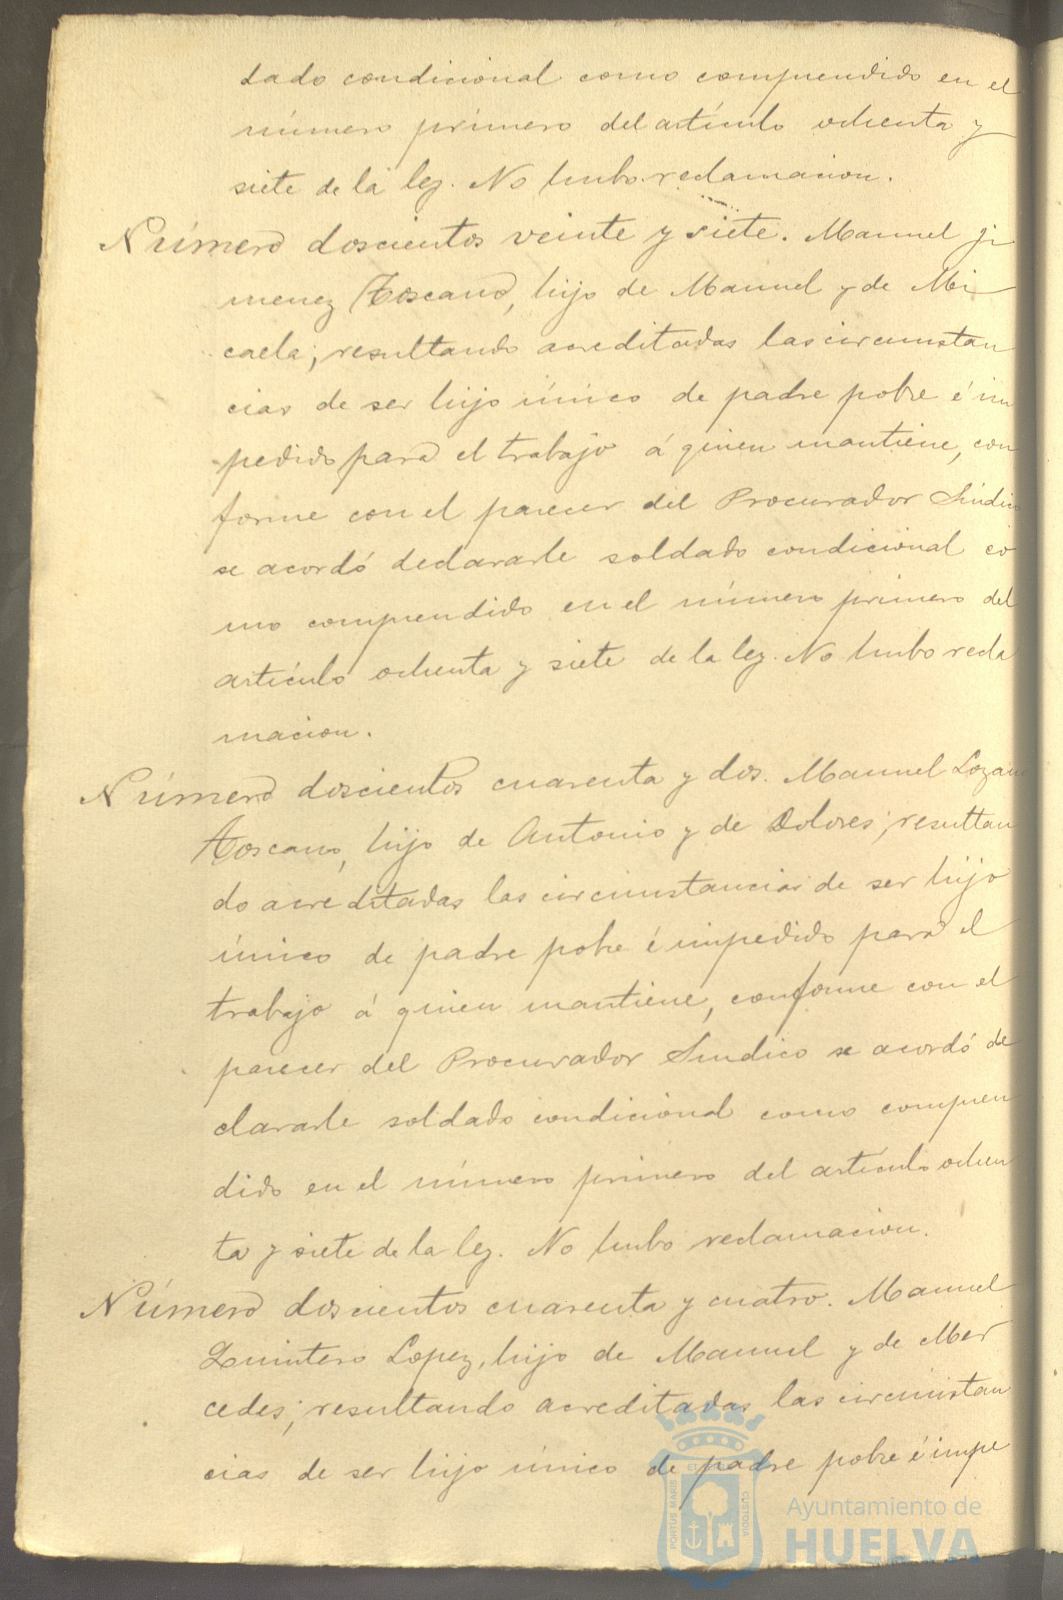 dado condicional como comprendido en el
número primero del artículo ochenta y
siete de la ley. No hubo reclamacion.
Número doscientos veinte y siete. Manuel Ji
menez Toscano, hijo de Manuel y de Mi
caela; resultando acreditadas las circunstan
cias de ser hijo único de padre pobre é im
pedido para el trabajo á quien mantiene, con
forme con el parecer del Procurador Síndico
se acordó declararle soldado condicional co
mo comprendido en el número primero del
artículo ochenta y siete de la ley. No hubo recla
macion.
Número doscientos cuarenta y dos. Manuel Lozano
Toscano, hijo de Antonio y de Dolores; resultan
do acreditadas las circunstancias de ser hijo
único de padre pobre é impedido para el
trabajo á quien mantiene, conforme con el
parecer del Procurador Síndico se acordó de
clararle soldado condicional como compren
dido en el número primero del artículo ochen
ta y siete de la ley. No hubo reclamacion.
Número doscientos cuarenta y cuatro. Manuel
Quintero Lopez, hijo de Manuel y de Mer
cedes; resultando acreditadas las circunstan
cias de ser hijo único de padre pobre é impe
PORTUS MARIS ET CUSTODIA
Ayuntamiento de
HUELVA